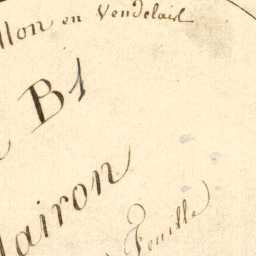 llon en Vendelais
B1
lairon
Feuille